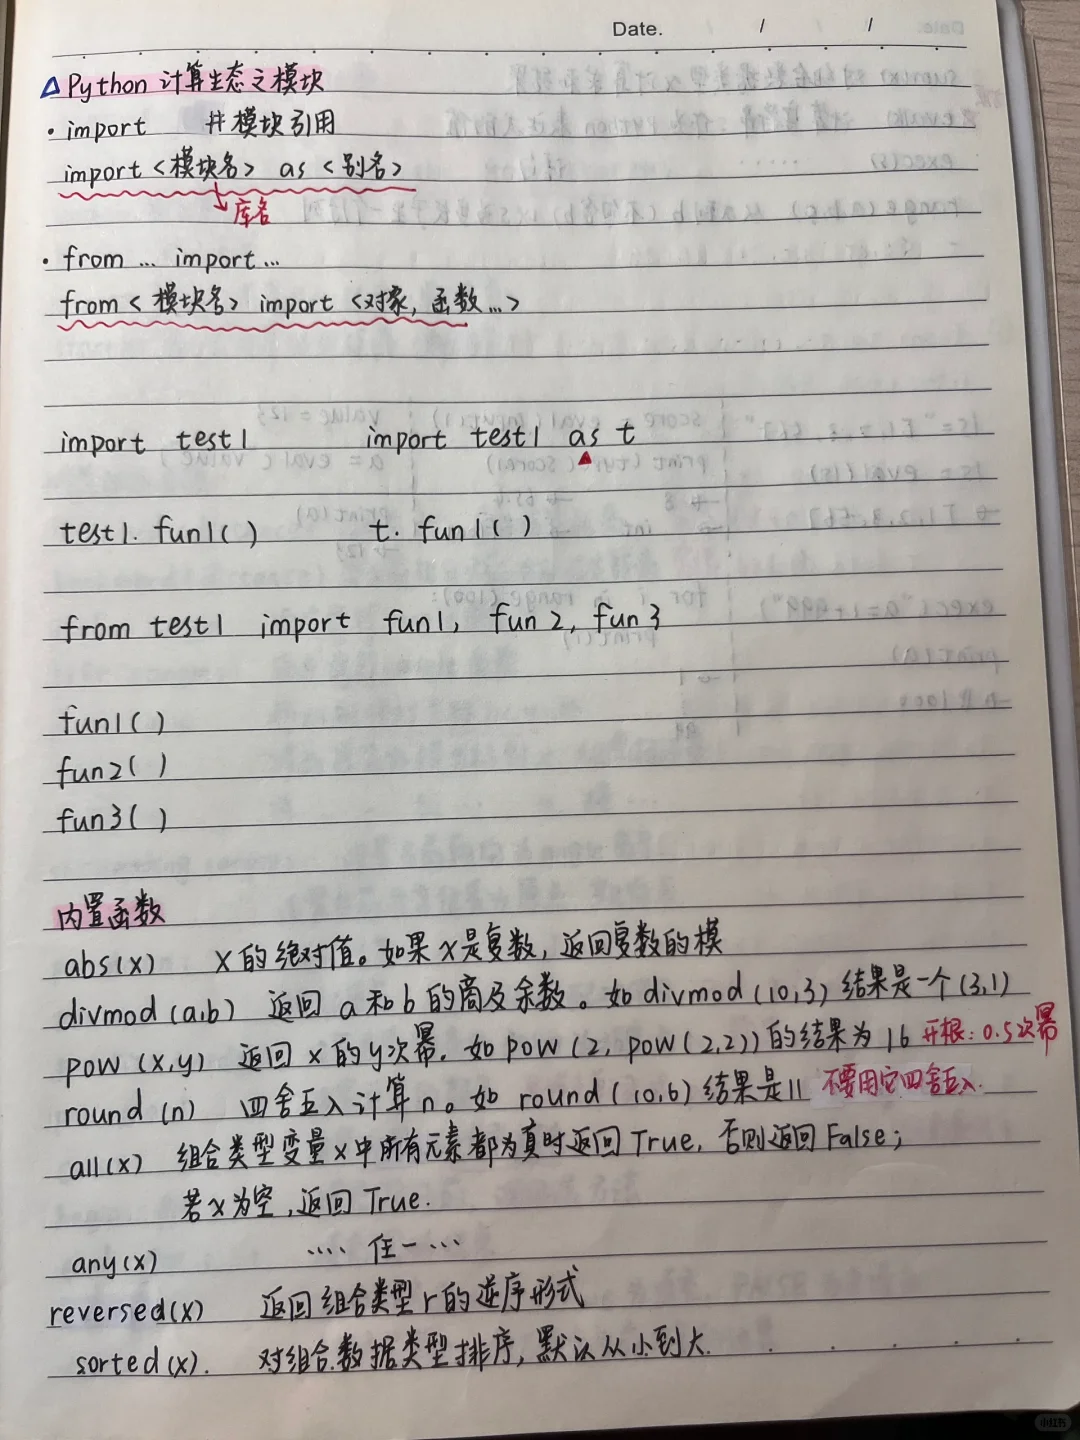 Date. / /
△ Python 计算生态之模块
· import #模块引用
import <模块名> as <别名>
库名
· from ... import ...
from <模块名> import <对象, 函数...>
import test1 import test1 as t
test1. fun1( ) t. fun1( )
from test1 import fun1, fun2, fun3
fun1( )
fun2( )
fun3( )
内置函数
abs(x) x的绝对值。如果x是复数, 返回复数的模
divmod(a,b) 返回a和b的商及余数。如divmod(10,3)结果是一个(3,1)
pow(x,y) 返回x的y次幂. 如pow(2, pow(2,2))的结果为16 开根: 0.5次幂
round(n) 四舍五入计算n。如round(10,6)结果是11 不要用它四舍五入.
all(x) 组合类型变量x中所有元素都为真时返回True, 否则返回False;
若x为空, 返回True.
any(x) .... 任一 ...
reversed(x) 返回组合类型r的逆序形式
sorted(x). 对组合数据类型排序, 默认从小到大.
小红书